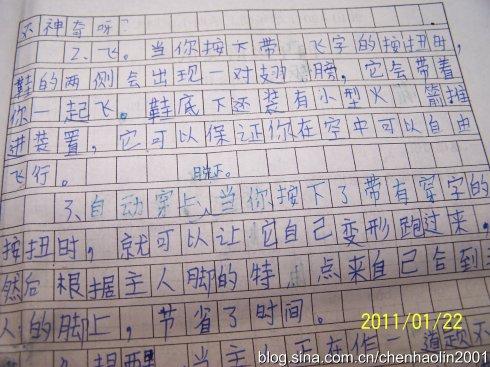 不神奇呀
2、飞。当你按下带 飞字的按扭时,
鞋的两侧会出现一对翅膀,它会带着
你一起飞。鞋底下还装有小型火箭推
进装置,它可以保证你在空中可以自由
飞行。
3、自动穿上、脱下。当你按下了带有穿字的
按扭时,就可以让它自己变形跑过来,
然后根据主人脚的特点来自己合到主
人的脚上,节省了时间。
2011/01/22
提醒 当主人正在作一道题
blog.sina.com.cn/chenhaolin2001